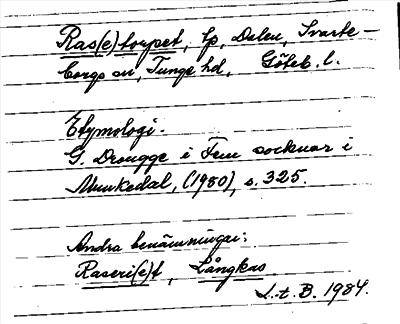 Ras(e)torpet, lp, Dalen, Svarte-
borgs sn, Tunge hd, Göteb. l.
Etymologi.
G. Drougge i Fem socknar i
Munkedal, (1980), s. 325.
Andra benämningar:
Raseri(e)t, Långkas
L.t. B. 1984.